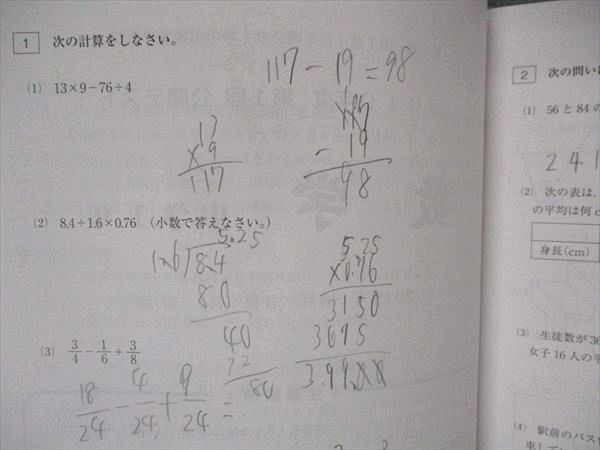 1 次の計算をしなさい。
117 − 19 = 98
(1) 13×9−76÷4
13
×9
117
117
− 19
98
(2) 8.4÷1.6×0.76 (小数で答えなさい。)
5.25
1.6)8.4
80
40
32
80
5.25
×0.76
3150
3695
3.99
(3) 3/4 − 1/6 + 3/8
18/24 − 4/24 + 9/24 =
2 次の問い
(1) 56と84の
241
(2) 次の表は、
の平均は何c
身長(cm)
(3) 生徒数が36
女子16人の平
(4) 駅前のバス